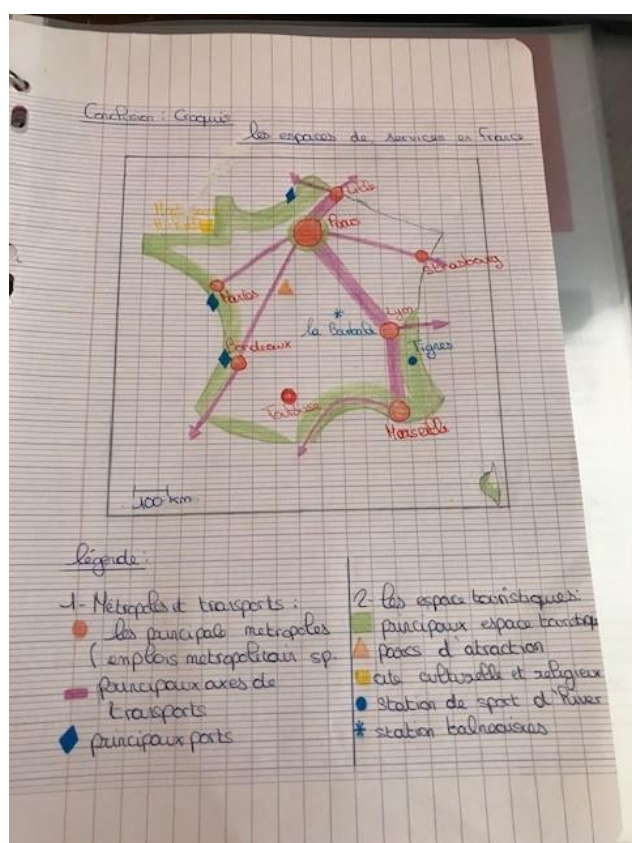 Conclusion : Croquis
les espaces de services en France
Lille
Paris
Strasbourg
Nantes
Lyon
la Bourboule
Bordeaux
Tignes
Toulouse
Marseille
100 km
légende :
1- Métropoles et transports :
les principale metropoles
(emplois metropolitain sp.
principaux axes de
transports
principaux ports
2- les espace touristiques:
principaux espace touristiq
parcs d'atraction
site culturelle et religieux
station de sport d'hiver
station balnéaires